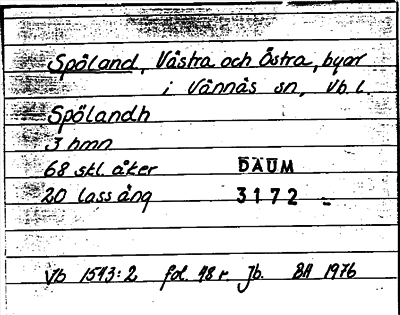 Spöland, Västra och Östra, byar
i Vännäs sn, Vb l.
Spölandh
3 hmn
68 skl. åker DAUM
20 lass äng 3172
Vb 1543:2 fol. 48 r. Jb. BH 1976